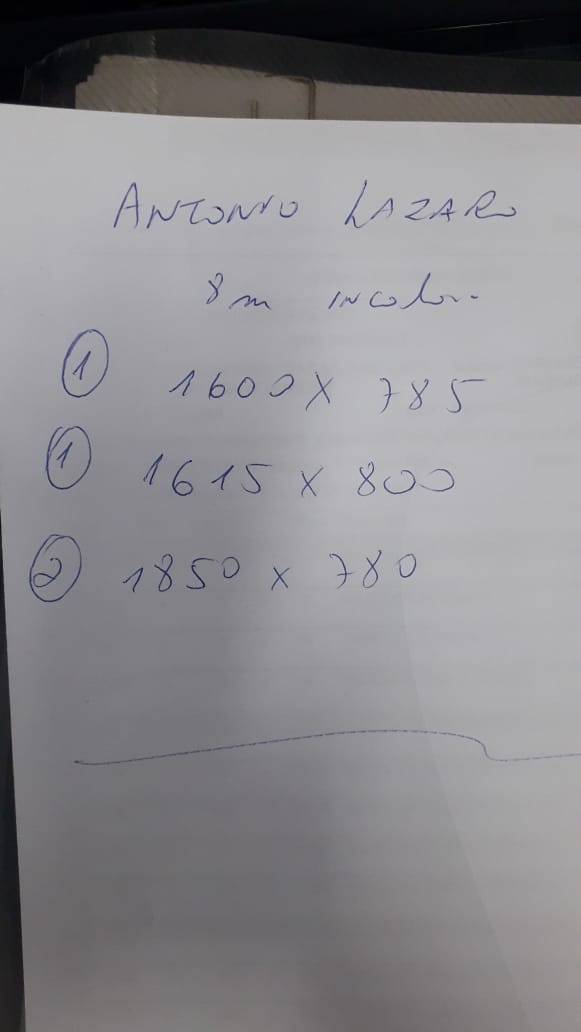 ANTONIO LAZARO
8m incolor.
1 1600 X 785
1 1615 x 800
2 1850 x 780